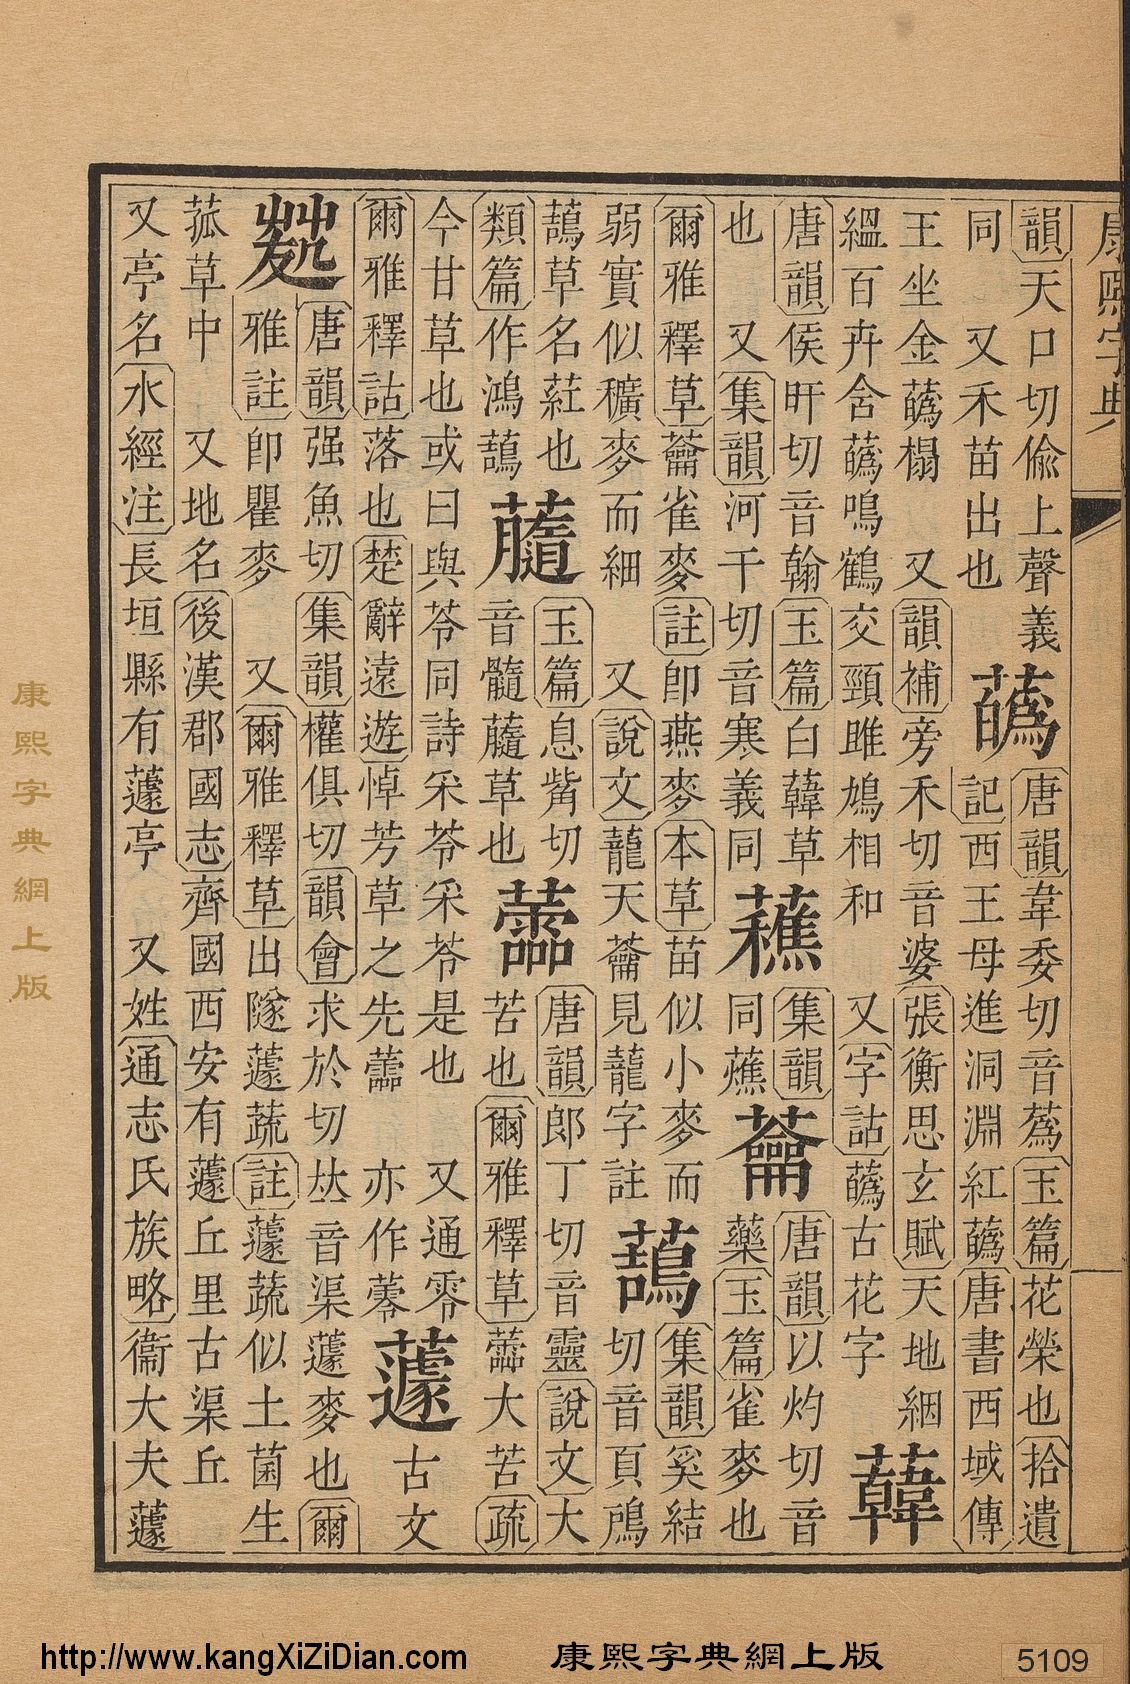 康熙字典
韻天口切偷上聲義
同 又禾苗出也
蘤
唐韻韋委切音蒍玉篇花榮也拾遺
記西王母進洞淵紅蘤唐書西域傳
王坐金蘤榻 又韻補旁禾切音婆張衡思玄賦天地絪
縕百卉含蘤鳴鶴交頸雎鳩相和 又字詁蘤古花字
唐韻侯旰切音翰玉篇白草
也 又集韻河干切音寒義同
集韻
同
蘥
唐韻以灼切音
藥玉篇雀麥也
爾雅釋草蘥雀麥註卽燕麥本草苗似小麥而
弱實似穬麥而細 又說文蘢天蘥見蘢字註
集韻奚結
切音頁
草名葒也
類篇作鴻
玉篇息觜切
音髓草也
蘦
唐韻郎丁切音靈說文大
苦也爾雅釋草蘦大苦疏
今甘草也或曰與苓同詩采苓采苓是也 又通零
爾雅釋詁落也楚辭遠遊悼芳草之先蘦 亦作蕶
蘧
古文
唐韻强魚切集韻權俱切韻會求於切𠀤音渠蘧麥也爾
雅註卽瞿麥 又爾雅釋草出隧蘧蔬註蘧蔬似土菌生
菰草中 又地名後漢郡國志齊國西安有蘧丘里古渠丘
又亭名水經注長垣縣有蘧亭 又姓通志氏族略衞大夫蘧
康熙字典網上版
http://www.kangXiZiDian.com 康熙字典網上版 5109